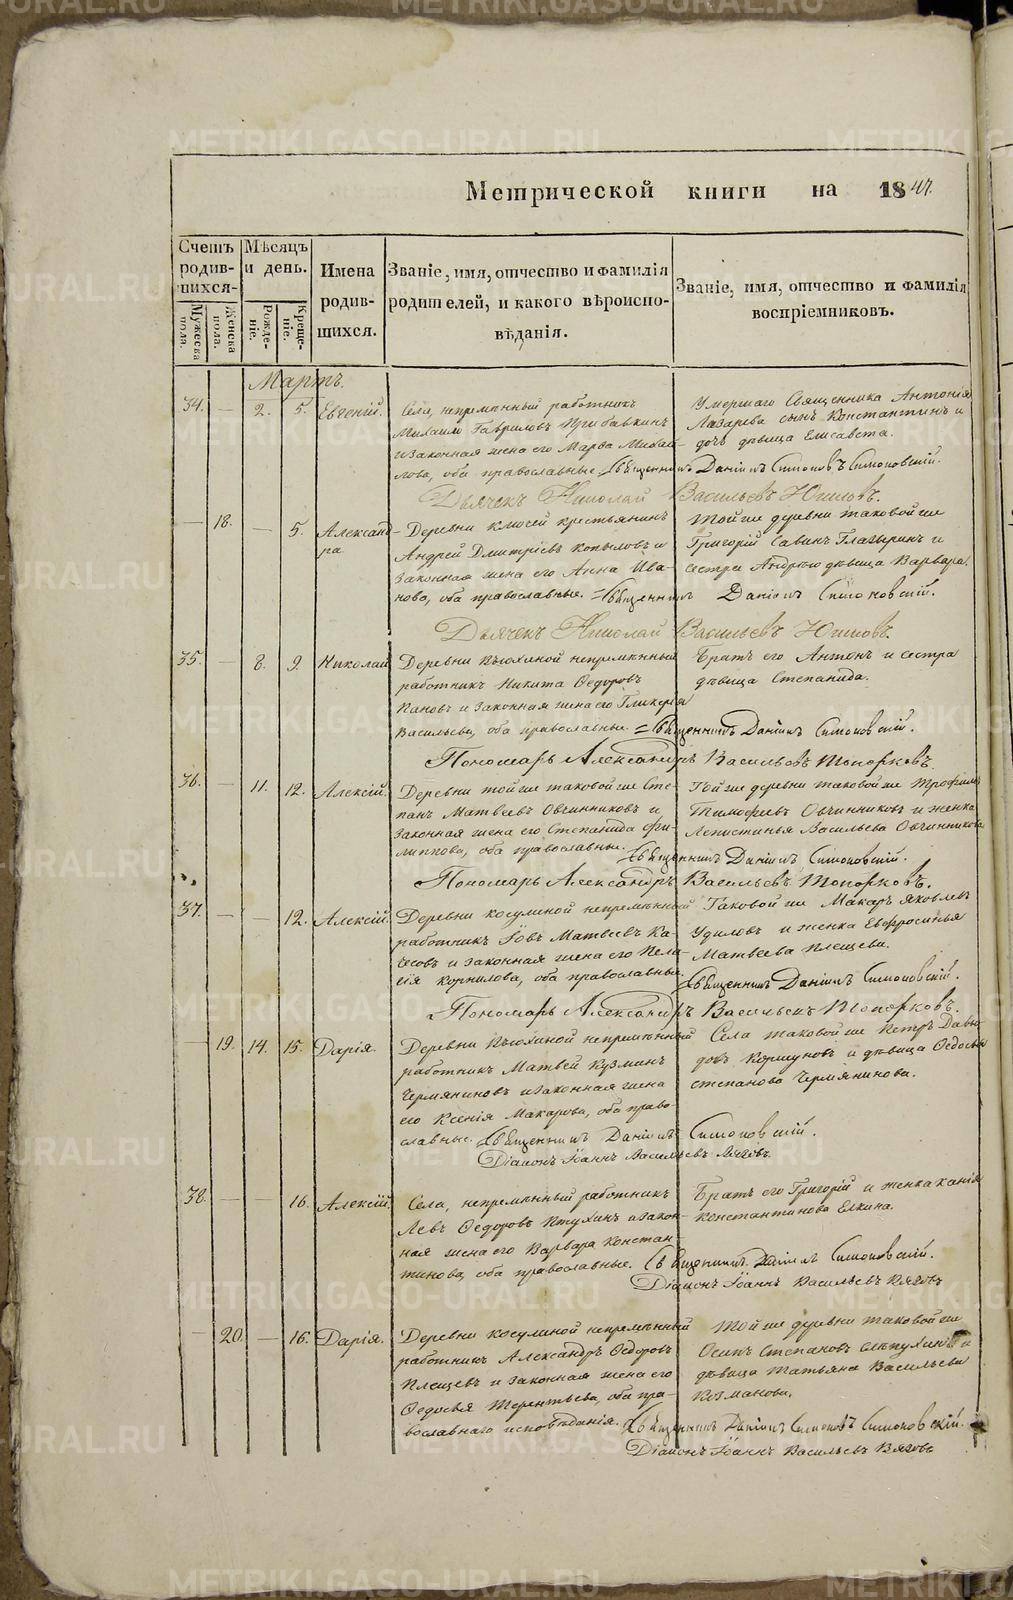 METRIKI.GASO-URAL.RU
Метрической книги на 1847.
Счетъ родив-шихся.
Мужеска пола.
Женска пола.
Мѣсяцъ и день.
Рожде-ніе.
Креще-ніе.
Имена родив-шихся.
Званіе, имя, отчество и фамилія
родителей, и какого вѣроиспо-
вѣданія.
Званіе, имя, отчество и фамилія
воспріемниковъ.
Мартъ.
34. — 2. 5. Евгеній.
Села, непремѣнный работникъ
Михаилъ Гавриловъ Прибавкинъ
и законная жена его Марѳа Михай-
лова, оба православные.
Умершаго Священника Антонія
Лазарева сынъ Константинъ и
дочь дѣвица Елисавета.
Священникъ Даніилъ Симоновъ Симоновскій.
Дьячекъ Николай Васильевъ
— 18. — 5. Александ-
ра
Деревни крестьянинъ
Андрей Дмитріевъ Копыловъ и
законная жена его Анна Ива-
нова, оба православные.
Той же деревни таковой же
Григорій Савинъ Глазыринъ и
сестра Андрею дѣвица Варвара.
Священникъ Даніилъ Симоновскій.
Дьячекъ Николай Васильевъ
35. — 8. 9. Николай
Деревни непремѣнный
работникъ Никита Ѳедоровъ
Пановъ и законная жена его Гликерія
Васильева, оба православные.
Братъ его Антонъ и сестра
дѣвица Степанида.
Священникъ Даніилъ Симоновскій.
Пономарь Александръ Васильевъ Топорковъ.
36. — 11. 12. Алексій.
Деревни той же таковой же Сте-
панъ Матвеевъ Овчинниковъ и
законная жена его Степанида Фи-
липпова, оба православные.
Той же деревни таковой же Трофимъ
Тимофеевъ Овчинниковъ и женка
Васильева Овчинникова
Священникъ Даніилъ Симоновскій.
Пономарь Александръ Васильевъ Топорковъ.
37. — — 12. Алексій.
Деревни косулиной непремѣнный
работникъ Іовъ Матвеевъ Ка-
чесовъ и законная жена его Пела-
гія Корнилова, оба православные.
Таковой же Макаръ Яковлевъ
Удиловъ и женка Евфросинья
Матвеева Плещева.
Священникъ Даніилъ Симоновскій.
Пономарь Александръ Васильевъ Топорковъ.
— 19. 14. 15. Дарія.
Деревни непремѣнный
работникъ Матвей Кузминъ
Черемяниновъ и законная жена
его Ксенія Макарова, оба право-
славные.
Села таковой же Петръ Давы-
довъ Коршуновъ и дѣвица Ѳедосья
степанова
Священникъ Даніилъ Симоновскій.
Діаконъ Іоаннъ Васильевъ
38. — — 16. Алексій.
Села, непремѣнный работникъ
Левъ Ѳедоровъ Птухинъ и закон-
ная жена его Варвара Констан-
тинова, оба православные.
Братъ его Григорій и женка
константинова Елкина.
Священникъ Даніилъ Симоновскій.
Діаконъ Іоаннъ Васильевъ
— 20. — 16. Дарія.
Деревни косулиной непремѣнный
работникъ Александръ Ѳедоровъ
Плещевъ и законная жена его
Ѳедосья Терентьева, оба пра-
вославнаго исповѣданія.
Той же деревни таковой же
Осипъ Степановъ и
дѣвица Татьяна Васильева
Козманова.
Священникъ Даніилъ Симоновъ Симоновскій.
Діаконъ Іоаннъ Васильевъ